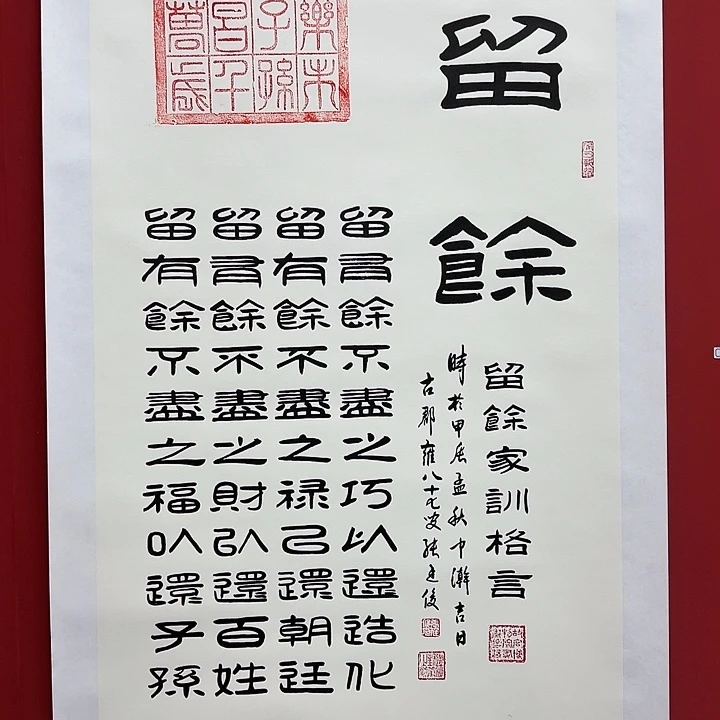 留餘
留餘家訓格言
時於甲辰孟秋中澣吉日
古郡雍八十七叟張廷俊
留有餘不盡之巧以還造化
留有餘不盡之禄以還朝廷
留有餘不盡之財以還百姓
留有餘不盡之福以還子孫
樂未
子孫
昌千
萬歲